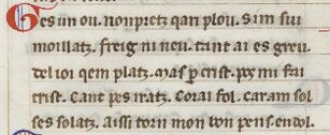 Ges un ou. non pretz qan plou. Sim sui
moillatz. freig ni neu. tant ai es greu.
del ioi qem platz. Mas per crist. pos mi fai
trist. Cant pes iratz. Corai fol. car am sol
ses solatz. aissi torn mon bon pens. en dol.